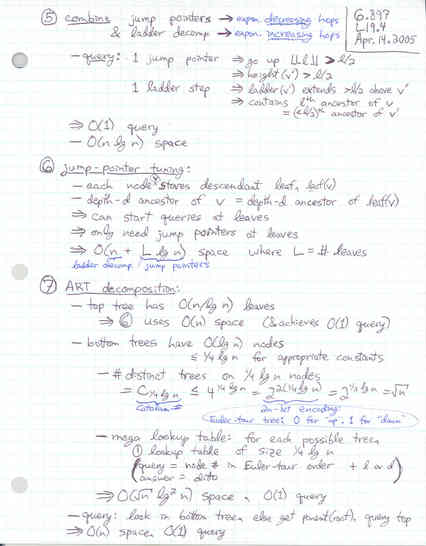 6.897
L19.4
Apr. 14, 2005
⑤ combine jump pointers → expon. decreasing hops
& ladder decomp → expon. increasing hops
- query: 1 jump pointer ⇒ go up ⌊⌊l⌋⌋ > l/2
⇒ height(v') > l/2
1 ladder step ⇒ ladder(v') extends > l/2 above v'
⇒ contains lth ancestor of v
= (≤ l/2)th ancestor of v'
⇒ O(1) query
- O(n lg n) space
⑥ jump-pointer tuning:
- each node v stores descendant leaf, leaf(v)
- depth-d ancestor of v = depth-d ancestor of leaf(v)
⇒ can start queries at leaves
⇒ only need jump pointers at leaves
⇒ O(n + L lg n) space where L = # leaves
ladder decomp. jump pointers
⑦ ART decomposition:
- top tree has O(n/lg n) leaves
⇒ ⑥ uses O(n) space (& achieves O(1) query)
- bottom trees have O(lg n) nodes
≤ 1/4 lg n for appropriate constants
- # distinct trees on 1/4 lg n nodes
= C_{1/4 lg n} ≤ 4^{1/4 lg n} = 2^{2(1/4 lg n)} = 2^{1/2 lg n} = √n
Catalan # 2n-bit encoding:
Euler-tour tree: 0 for "up", 1 for "down"
- mega lookup table: for each possible tree,
① lookup table of size 1/4 lg n
(query = node # in Euler-tour order + l or d
answer = ditto)
⇒ O(√n lg² n) space, O(1) query
- query: look in bottom tree, else get parent(root), query top
⇒ O(n) space, O(1) query